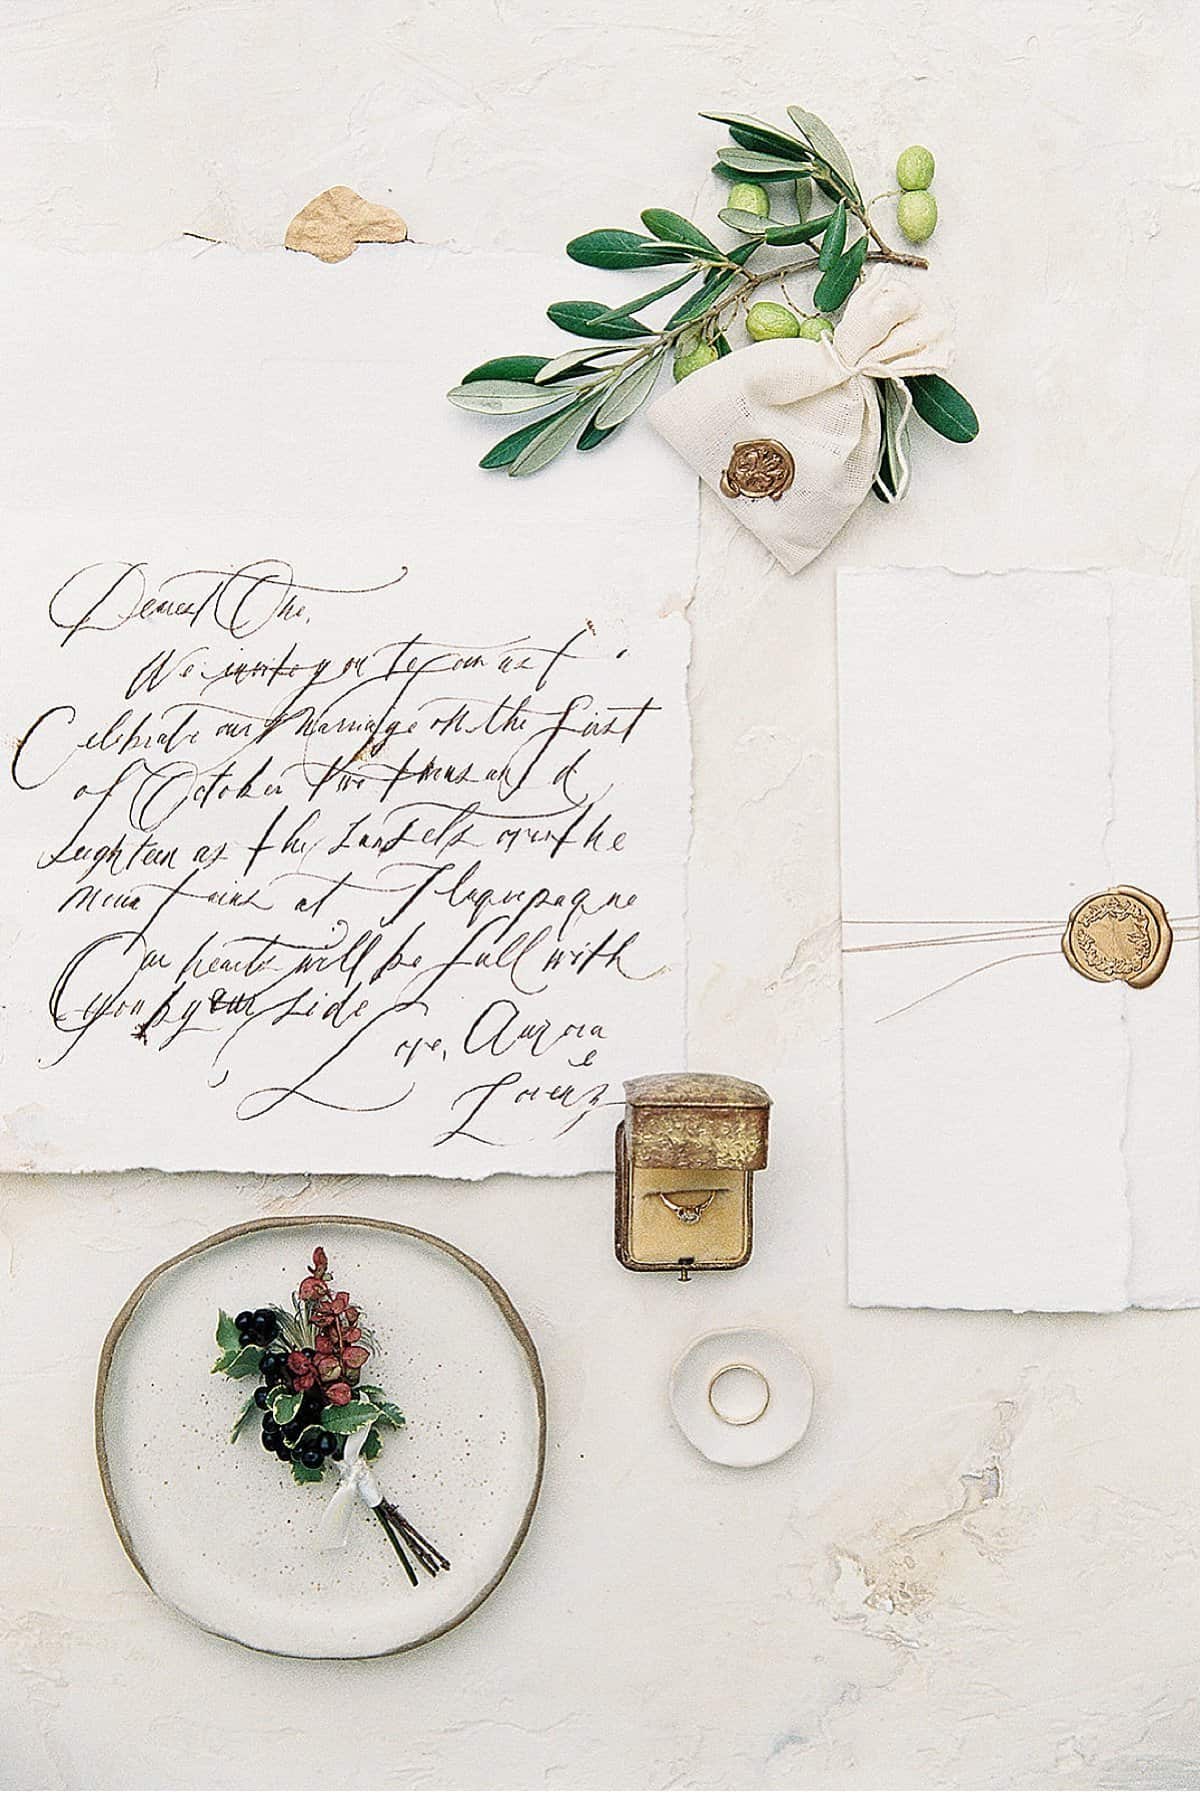 Dearest One,
We invite you to come as
Celebrate our Marriage on the first
of October two thousand
eighteen as the sunsets over the
mountains at
Our hearts will be full with
you by our side
Love, Aurora
e
Lorenz